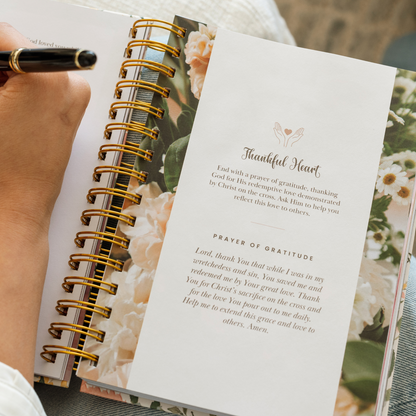 God loved you
Thankful Heart
End with a prayer of gratitude, thanking
God for His redemptive love demonstrated
by Christ on the cross. Ask Him to help you
reflect this love to others.
PRAYER OF GRATITUDE
Lord, thank You that while I was in my
wretchedness and sin, You saved me and
redeemed me by Your great love. Thank
You for Christ's sacrifice on the cross and
for the love You pour out to me daily.
Help me to extend this grace and love to
others. Amen.